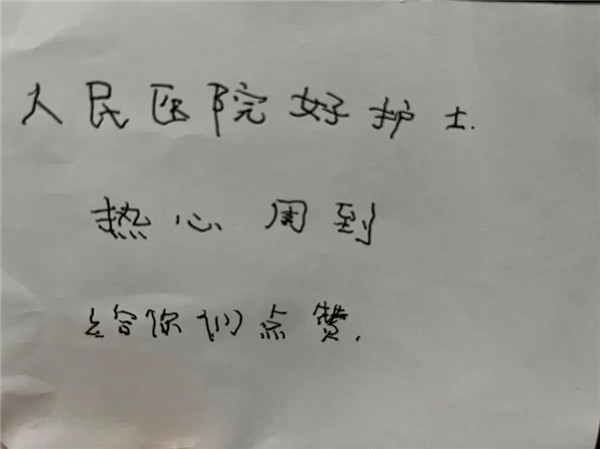 人民医院好护士.
热心周到
给你们点赞.